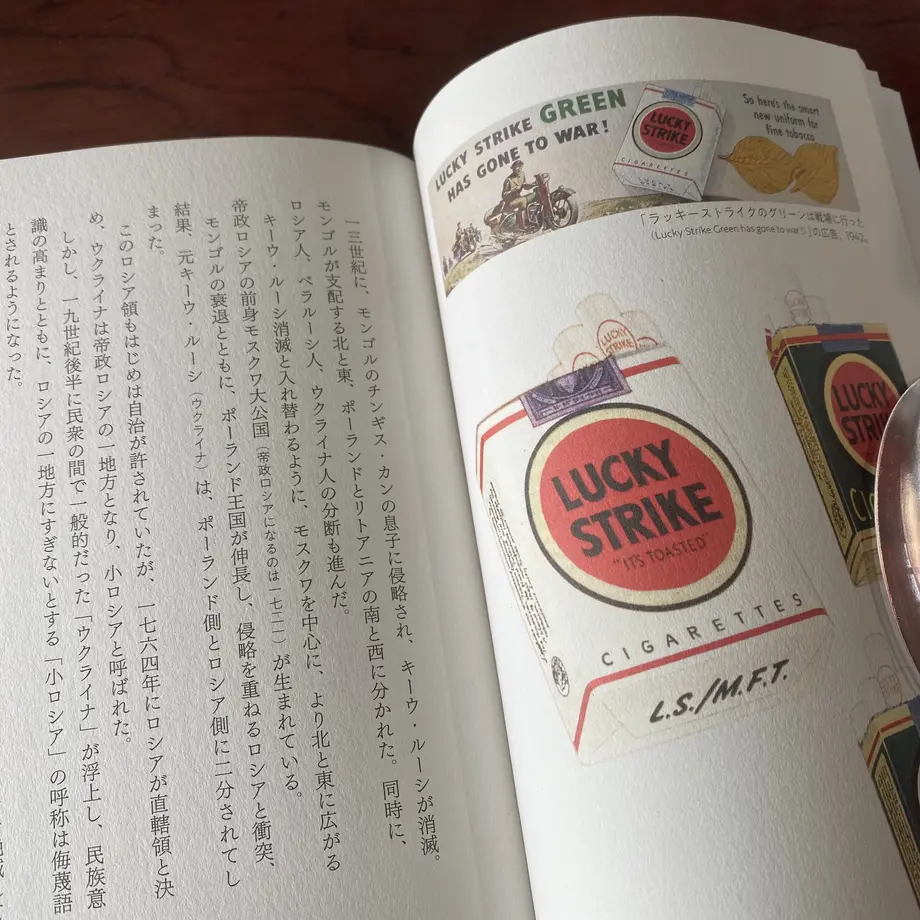 LUCKY STRIKE GREEN
HAS GONE TO WAR!
LUCKY
STRIKE
CIGARETTES
So here's the smart
new uniform for
fine tobacco
「ラッキーストライクのグリーンは戦場に行った
（Lucky Strike Green has gone to war!）」の広告、1942。
LUCKY
STRIKE
LUCKY
STRIKE
"IT'S TOASTED"
CIGARETTES
L.S./M.F.T.
LUCKY
一三世紀に、モンゴルのチンギス・カンの息子に侵略され、キーウ・ルーシが消滅。
モンゴルが支配する北と東、ポーランドとリトアニアの南と西に分かれた。同時に、
ロシア人、ベラルーシ人、ウクライナ人の分断も進んだ。
キーウ・ルーシ消滅と入れ替わるように、モスクワを中心に、より北と東に広がる
帝政ロシアの前身モスクワ大公国（帝政ロシアになるのは一七二一）が生まれている。
モンゴルの衰退とともに、ポーランド王国が伸長し、侵略を重ねるロシアと衝突、
結果、元キーウ・ルーシ（ウクライナ）は、ポーランド側とロシア側に二分されてし
まった。
このロシア領もはじめは自治が許されていたが、一七六四年にロシアが直轄領と決
め、ウクライナは帝政ロシアの一地方となり、小ロシアと呼ばれた。
しかし、一九世紀後半に民衆の間で一般的だった「ウクライナ」が浮上し、民族意
識の高まりとともに、ロシアの一地方にすぎないとする「小ロシア」の呼称は侮蔑語
とされるようになった。